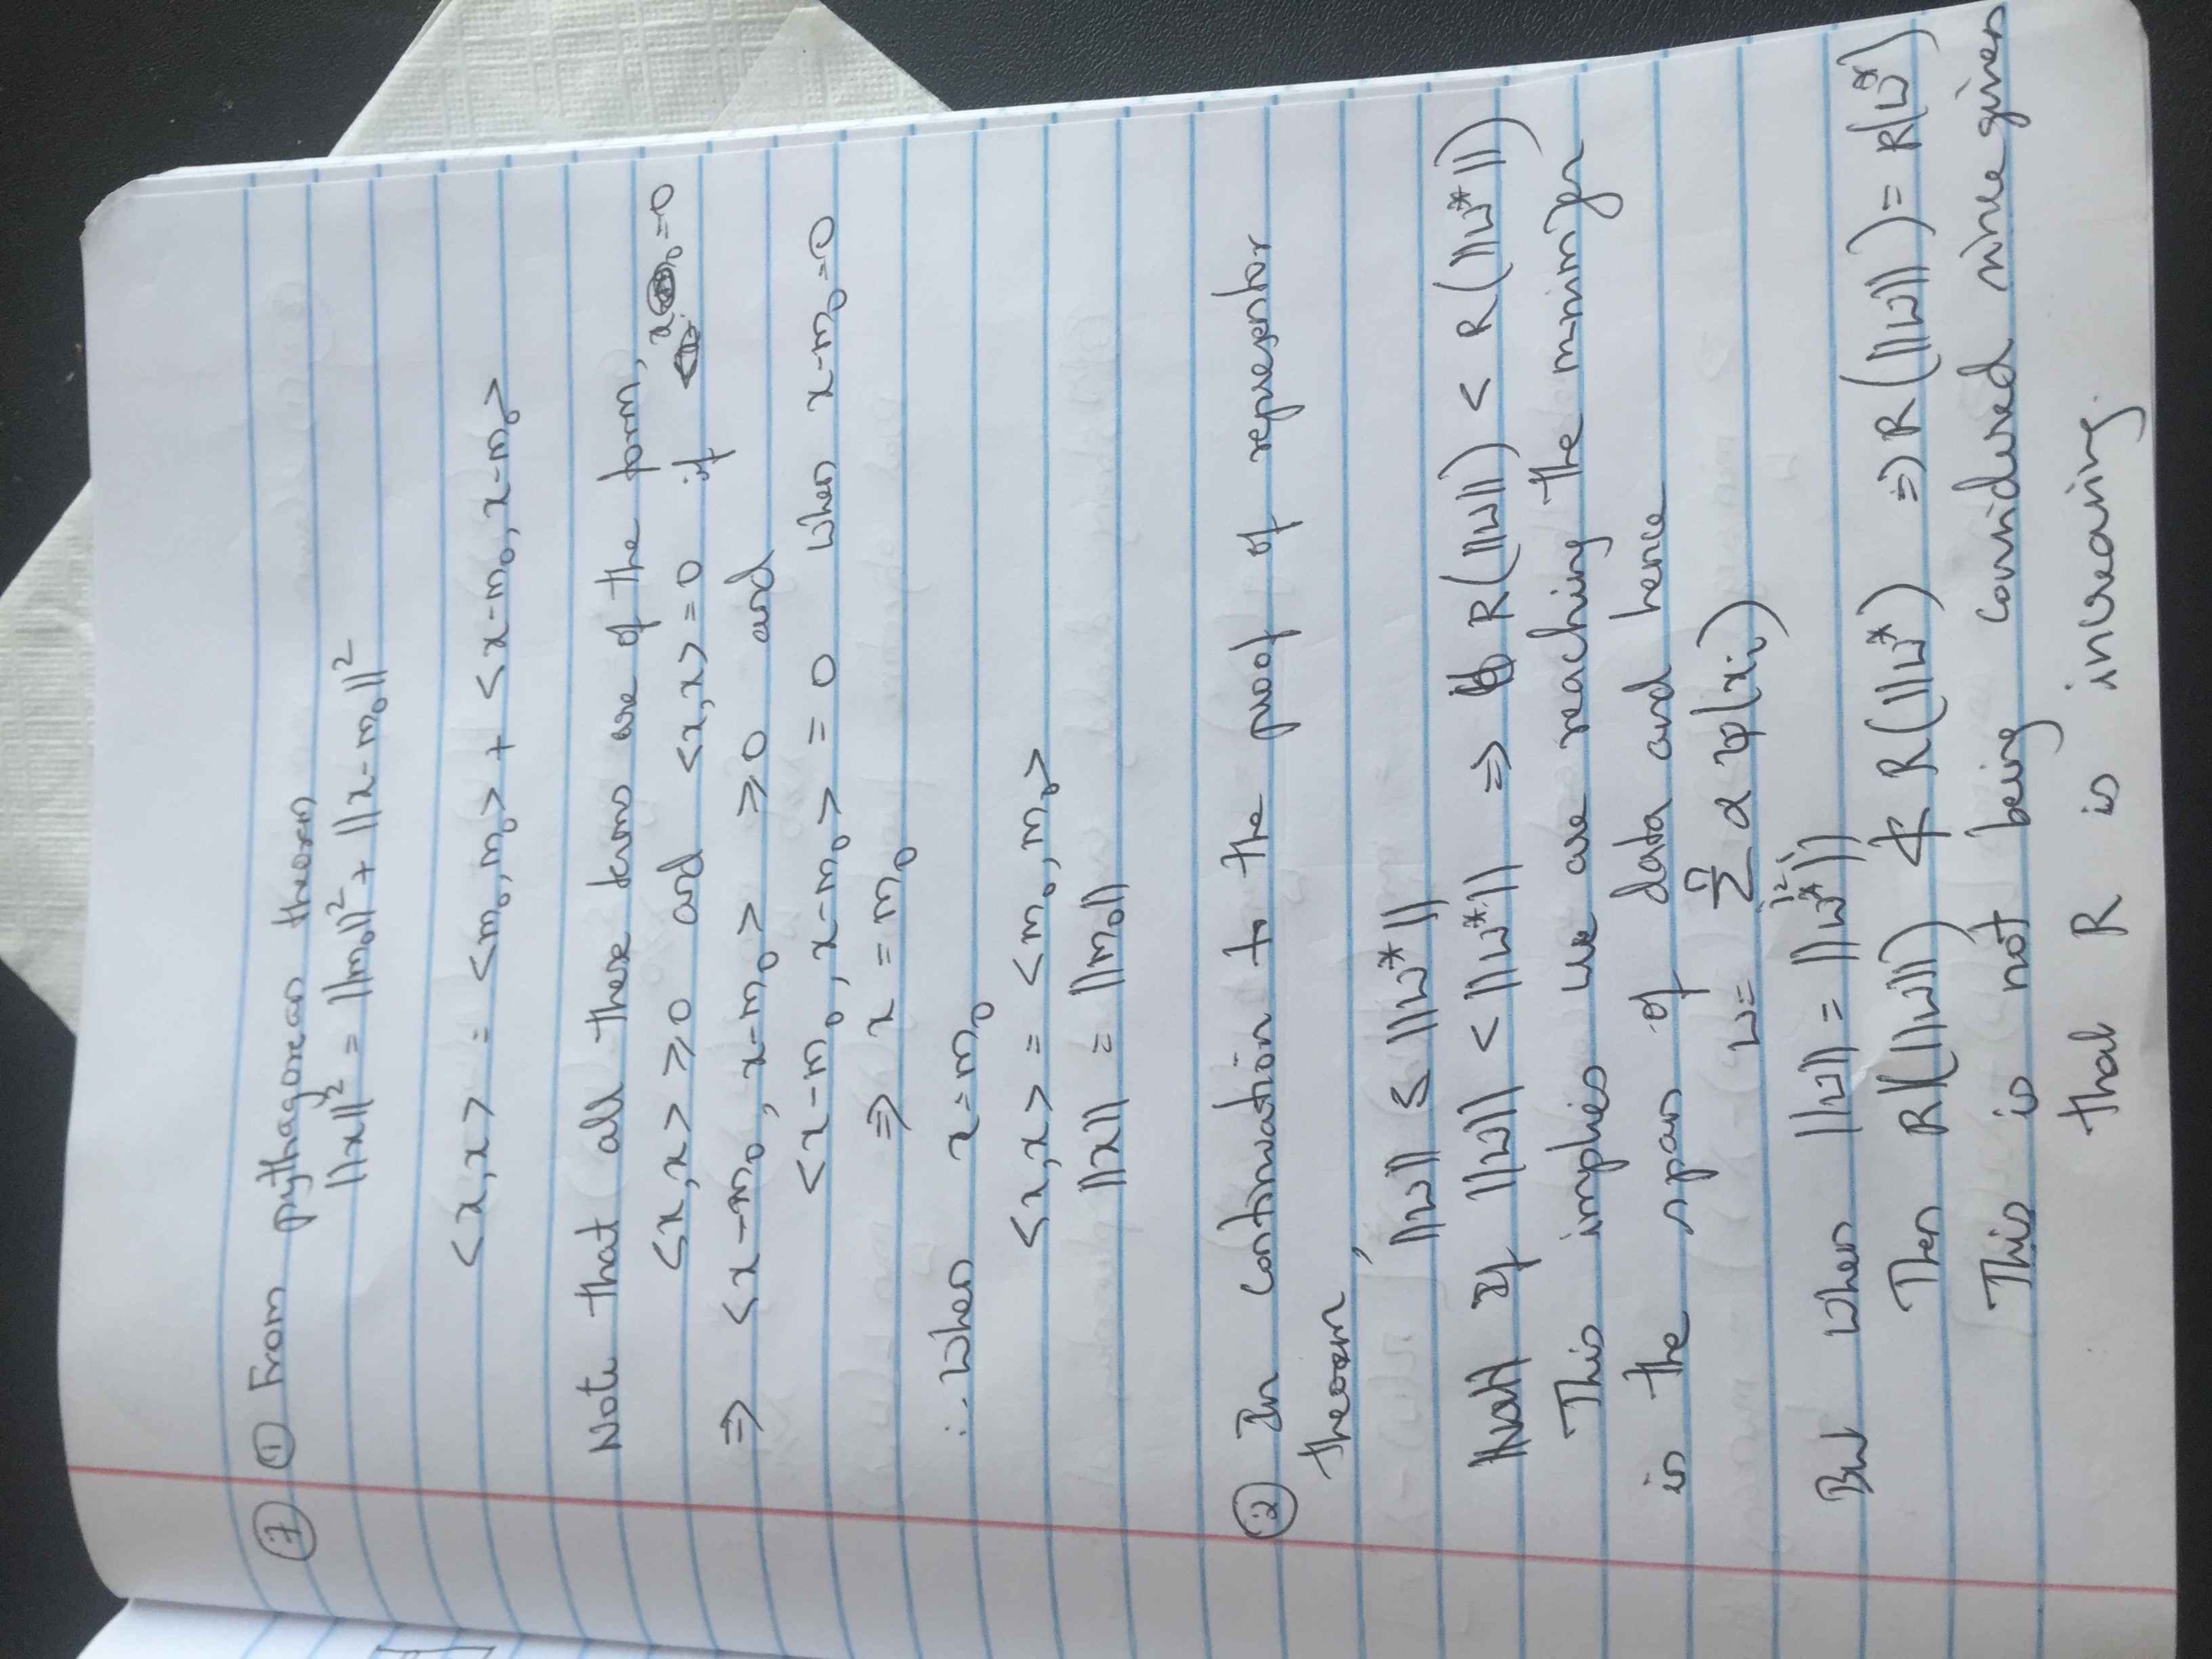 ⑦ ① From pythagorean theorem
||x||² = ||m₀||² + ||x-m₀||²
<x,x> = <m₀,m₀> + <x-m₀, x-m₀>
Note that all these terms are of the form,
<x,x> ≥0 and <x,x> = 0 if x =0
⇒ <x-m₀, x-m₀> ≥0 and
<x-m₀, x-m₀> = 0 when x-m₀=0
⇒ x = m₀
∴ when x=m₀
<x,x> = <m₀,m₀>
||x|| = ||m₀||
② In continuation to the proof of representor
theorem,
||w|| ≤ ||w*||
If ||w|| < ||w*|| ⇒ R(||w||) < R(||w*||)
This implies we are reaching the minimizer
in the span of data and hence
w= Σⁿᵢ₌₁ α ψ(xᵢ)
But when ||w|| = ||w*||
Then R(||w||) ≮ R(||w*) ⇒ R(||w||) = R(w*)
This is not being considered since given
that R is increasing.